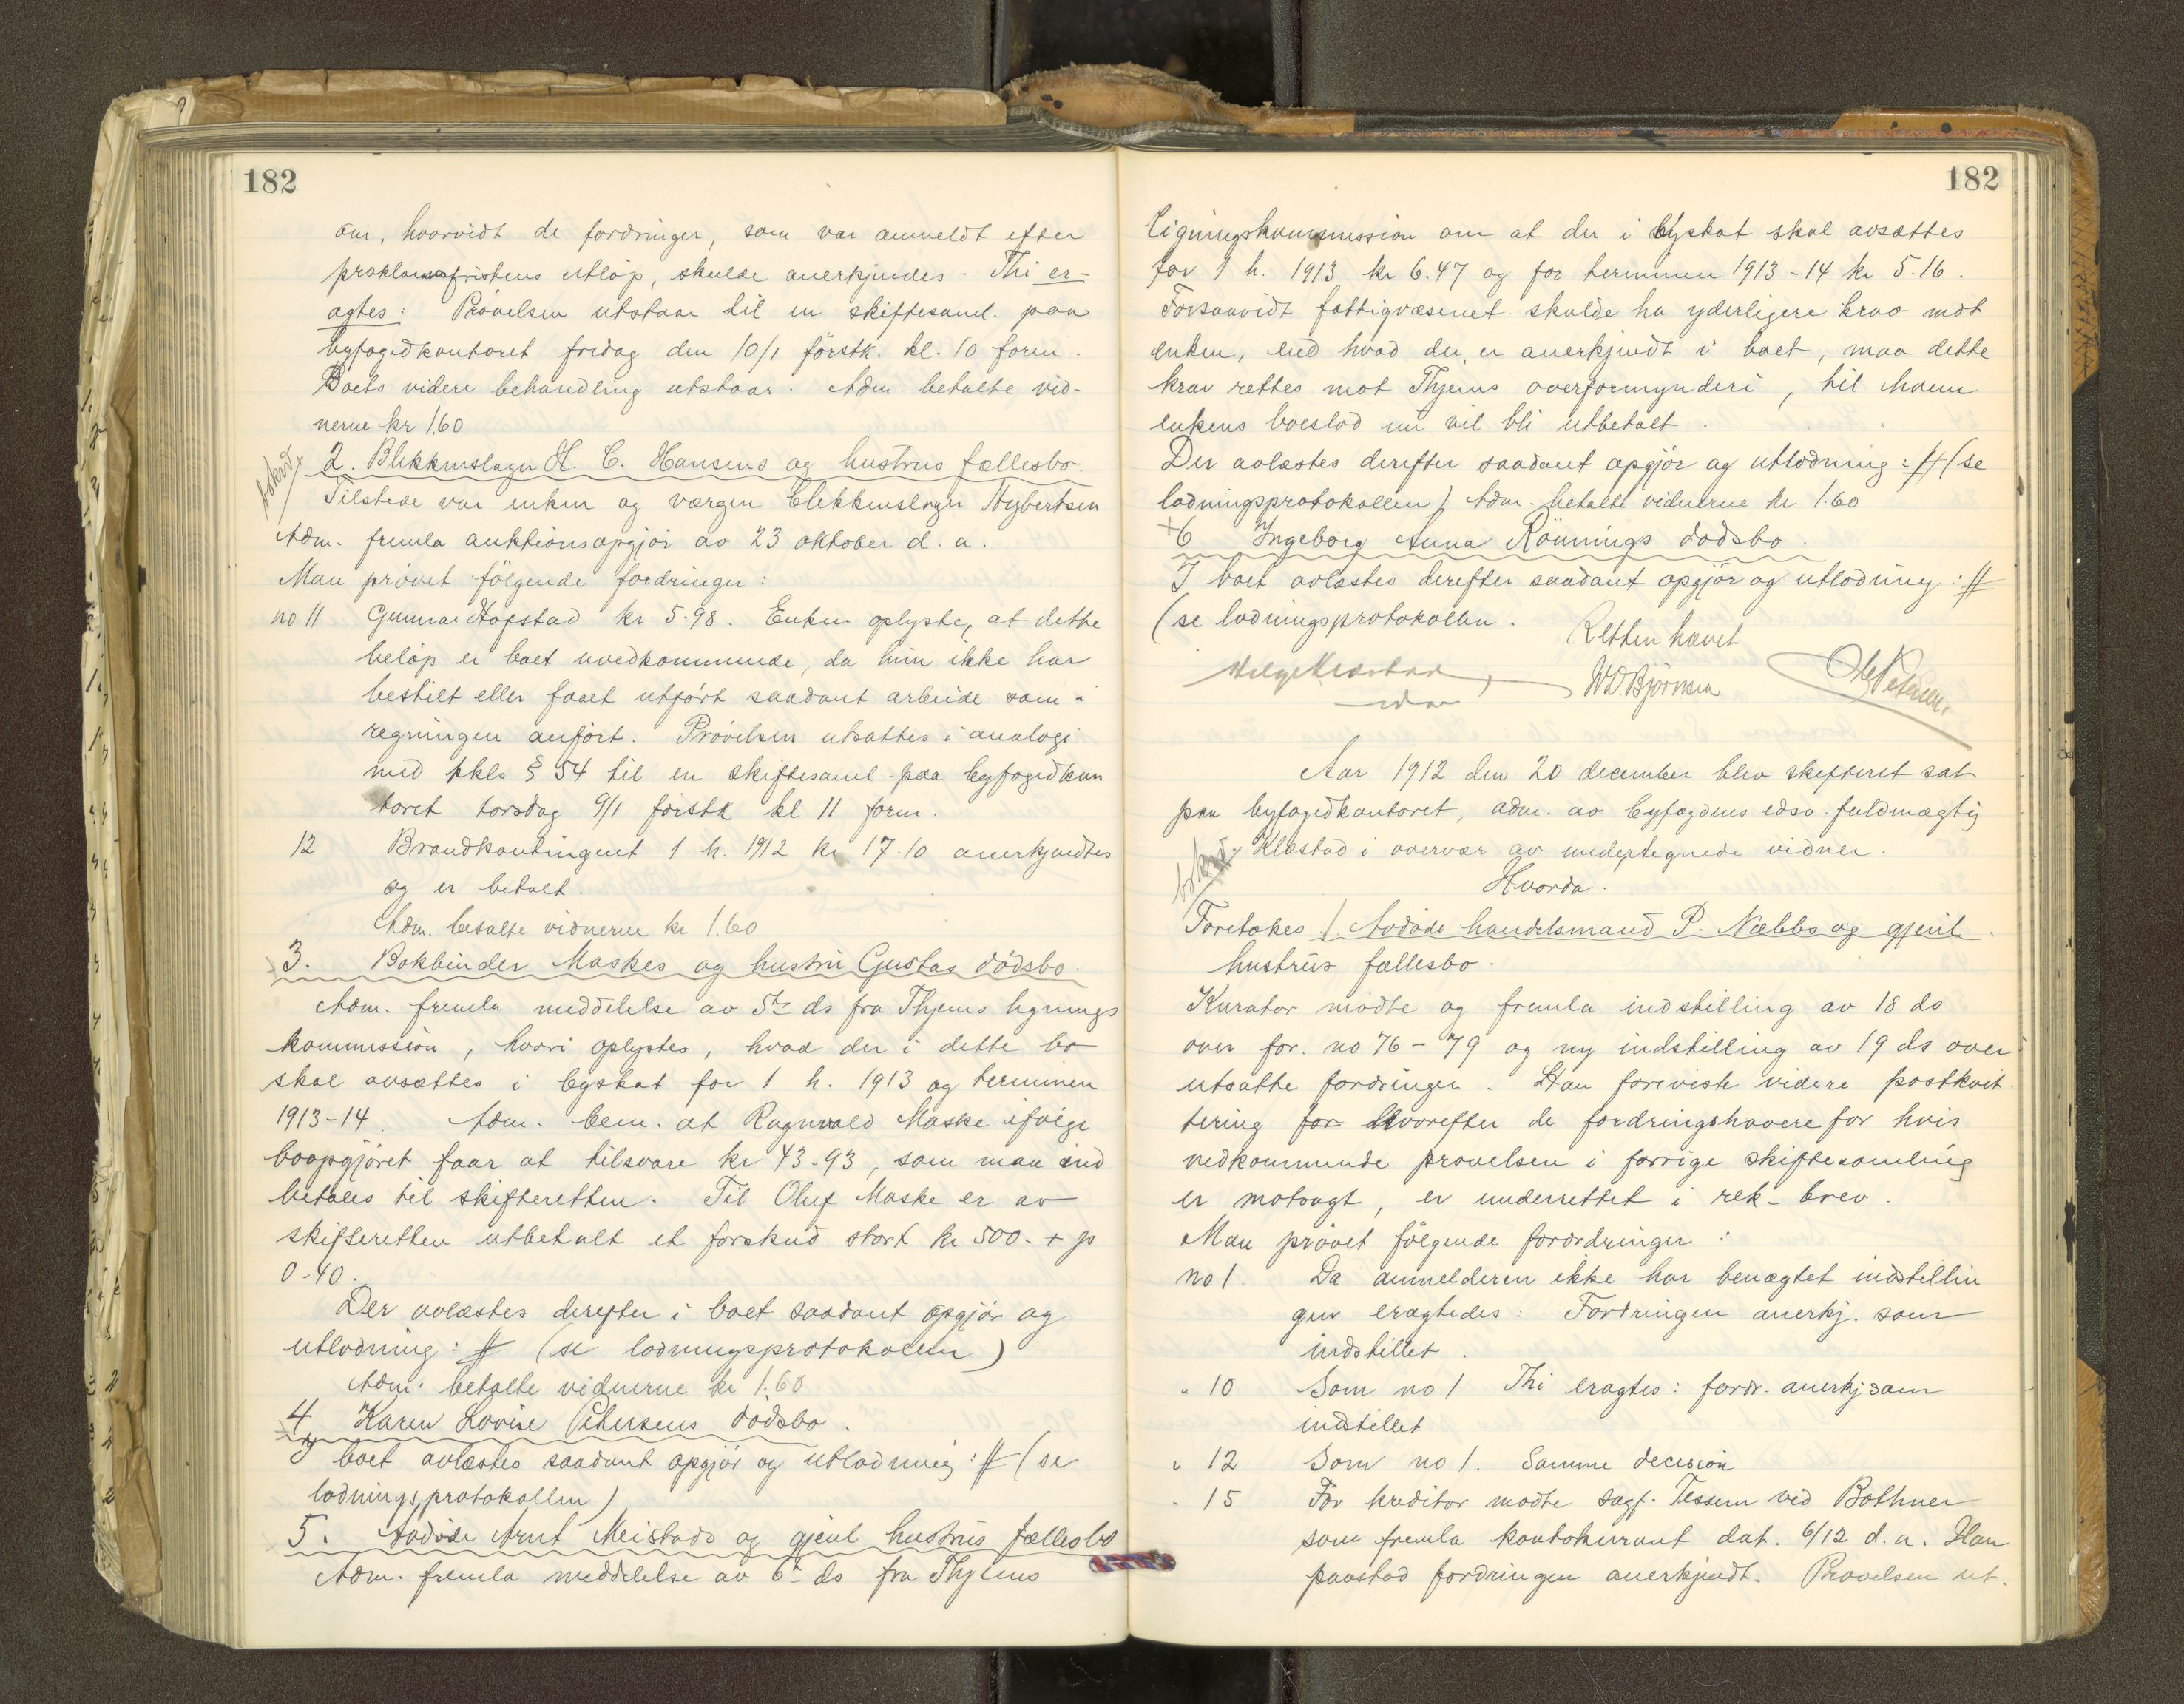 182
om, hvorvidt de fordringer, som var anmeldt efter
proklamafristens utløp, skulde anerkjendes. Thi er-
agtes: Prøvelsen utstaar til en skiftesaml. paa
byfogedkontoret fredag den 10/1 förstk. kl. 10 form.
Boets videre behandling utstaar. Adm. betalte vid-
nerne kr 1.60
2. Blikkenslager H. C. Hansens og hustrus fællesbo.
Tilstede var enken og vergen blikkenslager Hybertsen
Adm. fremla auktionsopgjör av 23 oktober d. a.
Man prövet fölgende fordringer:
no 11 Gunnar Hofstad kr 5.98. Enken oplyste, at dette
belöp er boet uvedkommende, da hun ikke har
bestilt eller faaet utfört saadant arbeide som i
regningen anfört. Prövelsen utsattes i analogi
med kkls § 54 til en skiftesaml. paa byfogedkon
toret torsdag 9/1 förstk kl 11 form.
12 Brandkontingent 1 h. 1912 kr 17.10 anerkjendtes
og er betalt.
Adm. betalte vidnerne kr 1.60
3. Bokbinder Maskes og hustru Gustas dödsbo.
Adm. fremla meddelelse av 5te ds fra Thjems lignings
kommission, hvori oplystes, hvad der i dette bo
skal avsættes i byskat for 1 h. 1913 og terminen
1913-14. Adm. bem. at Ragnvald Maske ifölge
boopgjöret faar at tilsvare kr 43.93, som maa ind
betales til skifteretten. Til Oluf Maske er av
skifteretten utbetalt et forskud stort kr 500.- + p
0-40.
Der avlæstes derefter i boet saadant opgjör og
utlodning: # (se lodningsprotokollen)
Adm. betalte vidnerne kr 1.60
4 Karen Lovise Petersens dödsbo.
I boet avlæstes saadant opgjör og utlodning: # (se
lodningsprotokollen)
5. Avdöde Arnt Meistads og gjenl hustrus fællesbo
Adm. fremla meddelelse av 6te ds fra Thjems
182
ligningskommission om at der i byskat skal avsættes
for 1 h. 1913 kr 6.47 og for terminen 1913-14 kr 5.16.
Forsaavidt fattigvæsenet skulde ha yderligere krav mot
enken, end hvad der er anerkjendt i boet, maa dette
krav rettes mot Thjems overformynderi, til hvem
enkens boeslod nu vil bli utbetalt.
Der avlæstes derefter saadant opgjör og utlodning: # (se
lodningsprotokollen) Adm. betalte vidnerne kr 1.60
+6 Ingeborg Anna Rönnings dödsbo.
I boet avlæstes derefter saadant opgjör og utlodning: #
(se lodningsprotokollen.
Retten hævet
W.D. Björnsen
Ole Petersen.
Aar 1912 den 20 december blev skifteret sat
paa byfogedkontoret, adm. av byfogdens edsv. fuldmægtig
Klæstad i overvær av undertegnede vidner.
Hvorda.
Foretokes: 1. Avdöde handelsmand P. Næbbs og gjenl.
hustrus fællesbo.
Kurator mödte og fremla indstilling av 18 ds
over for. no 76-79 og ny indstilling av 19 ds over
utsatte fordringer. Han foreviste videre postkvit-
tering for hvorefter de fordringshavere for hvis
vedkommende prøvelsen i forrige skiftesamling
er motsagt, er underrettet i rek-brev.
Man prövet fölgende forordringer:
no 1. Da anmelderen ikke har benægtet indstillin
gen eragtedes: Fordringen anerkj. som
indstillet.
" 10 Som no 1 Thi eragtes: fordr. anerkj som
indstillet
" 12 Som no 1. Samme decision
" 15 For kreditor mødte sagf. Tessem ved Bothner
som fremla kontokurant dat. 6/12 d. a. Han
paastod fordringen anerkjendt. Prøvelsen ut-